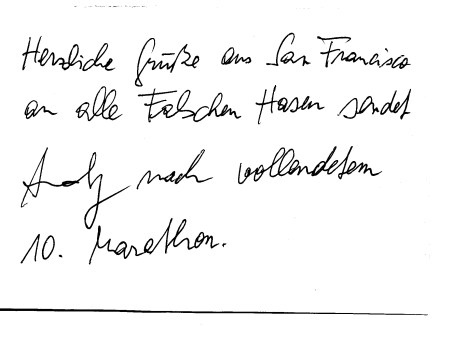 Herzliche Grüße aus San Francisco
an alle Falschen Hasen sendet
Andy nach vollendetem
10. Marathon.